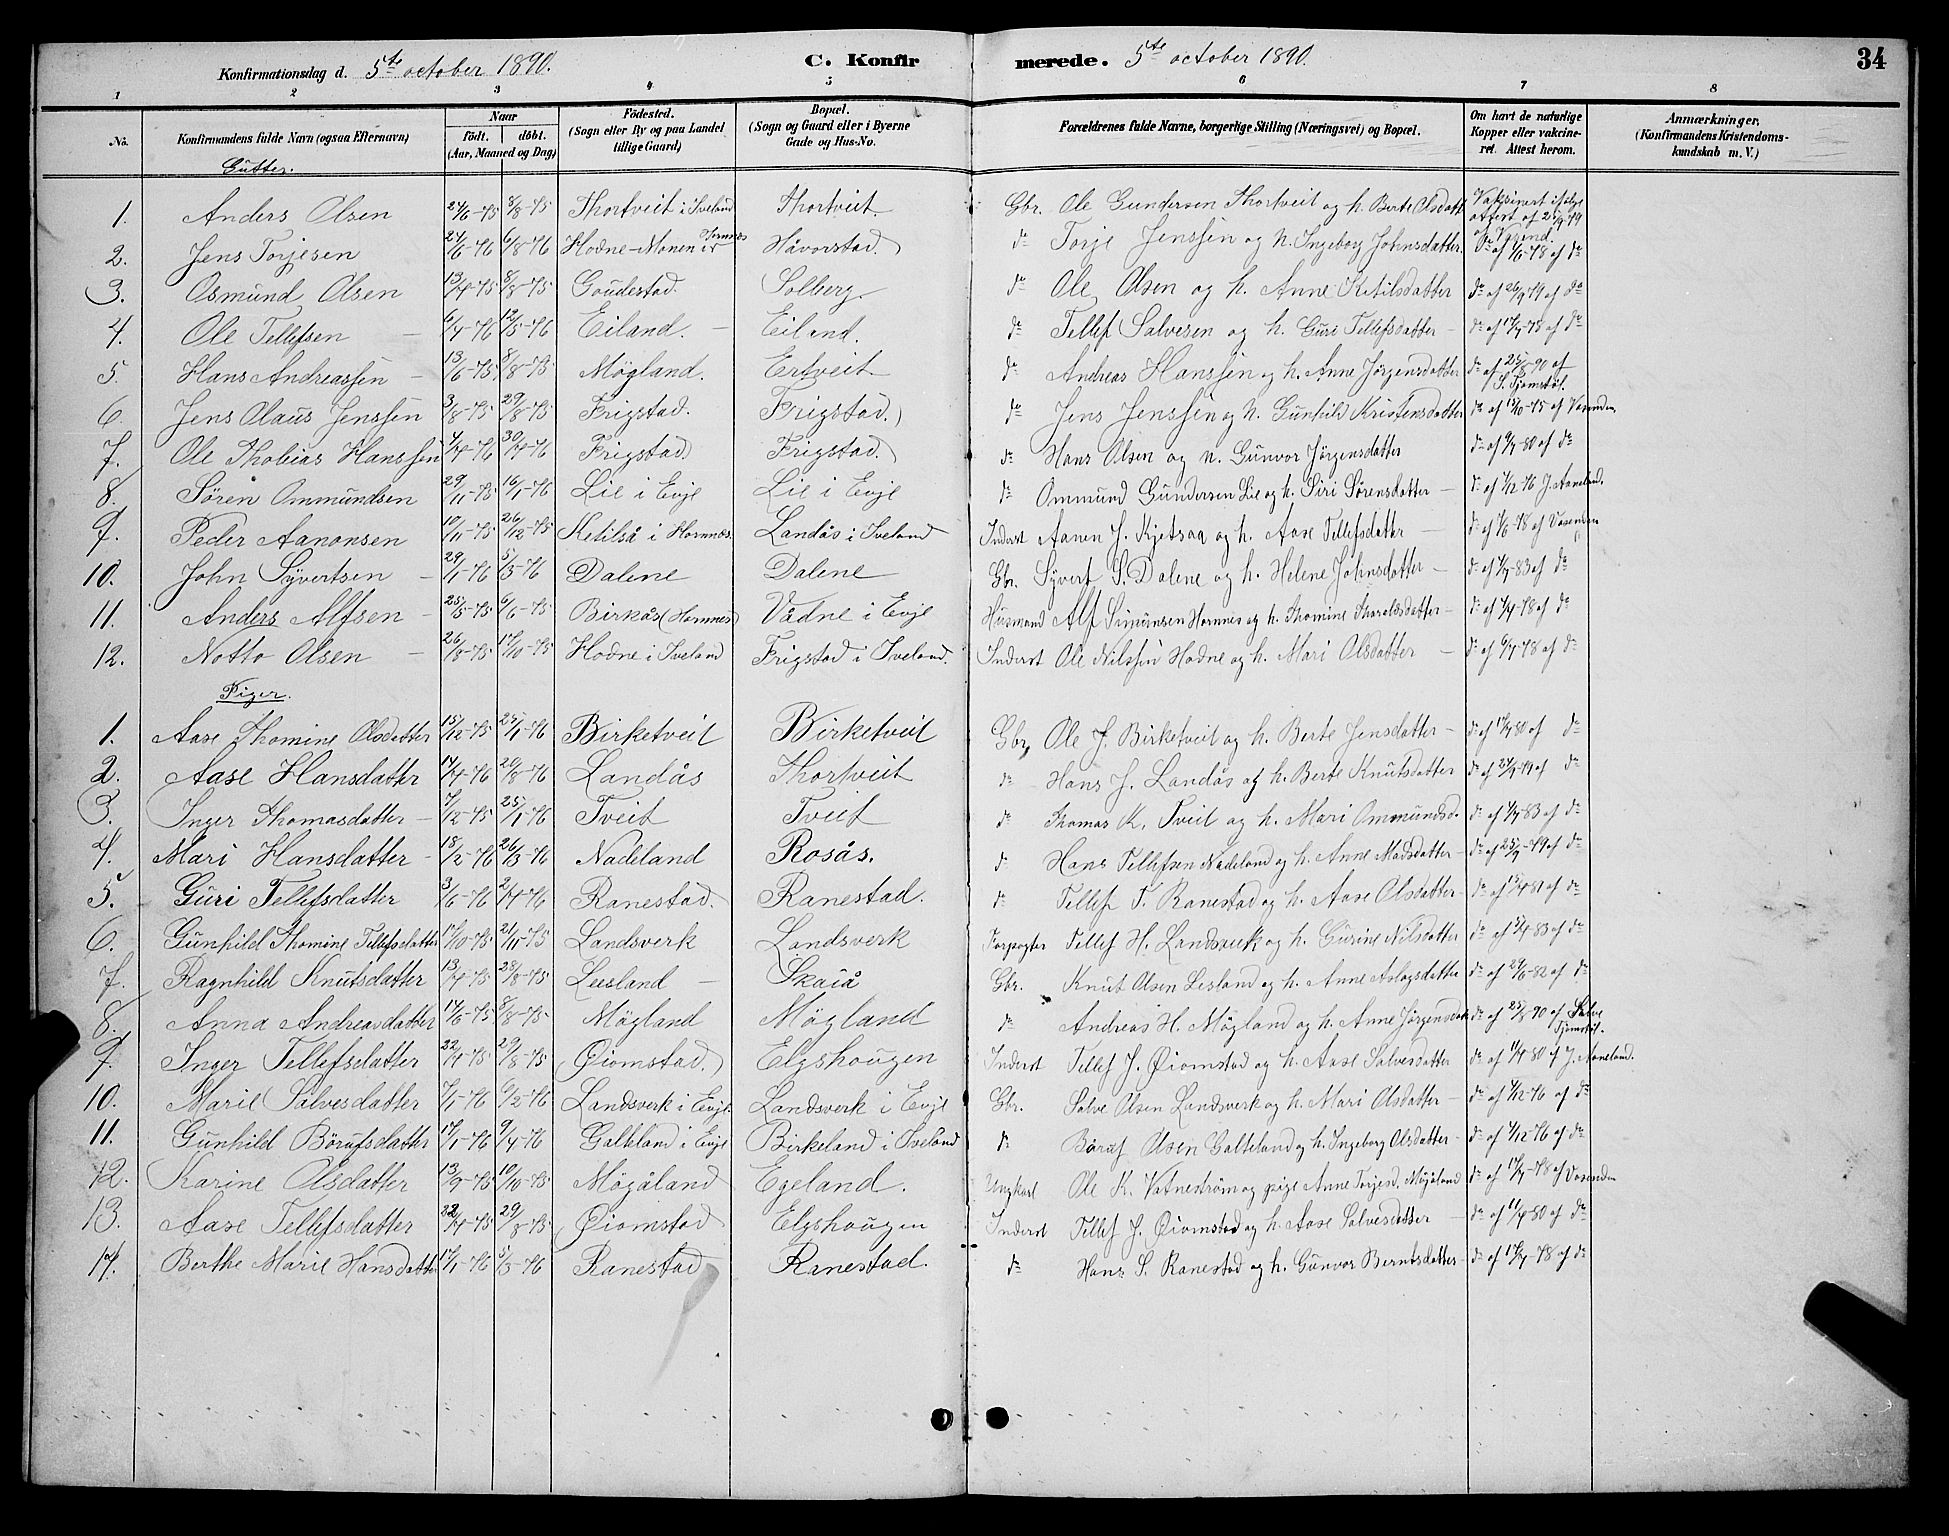 34
Konfirmationsdag d. 5te october 1890. C. Konfirmerede. 5te october 1890.
1 2 3 4 5 6 7 8
No. Konfirmandens fulde Navn (ogsaa Efternavn) Naar født. døbt. (Aar, Maaned og Dag) Fødested. (Sogn eller By og paa Landet tillige Gaard) Bopæl. (Sogn og Gaard eller i Byerne Gade og Hus-No. Forældrenes fulde Navne, borgerlige Stilling (Næringsvei) og Bopæl. Om havt de naturlige Kopper eller vakcineret. Attest herom. Anmærkninger, (Konfirmandens Kristendomskundskab m. V.)
Gutter.
1. Anders Olsen 8/8-75 Thortveit i Iveland Thortveit. Gbr. Ole Gundersen Thortveit og h. Berte Olsdatt Vaksinert attest af
2. Jens Torjesen 6/8-76 Hodne-Monen Hornnes Håvorstad. do Torje Jenssen og h. Ingeborg Johnsdatter. do af do
3. Osmund Olsen 13/4-75 8/8-75 Goudestad. Solberg. do Ole Olsen og h. Anne Ketilsdatter do af 26/9-79 af do
4. Ole Tellefsen 6/4-76 12/5-76 Eiland. Eiland. do Tellef Salvesen og h. Guri Tellefsdatter do af 17/7-78 af do
5. Hans Andreassen 13/6-75 8/8-75 Mögland. Ertveit do Andreas Hanssen og h. Anne Jörgensdatter do af 25/8-90 af S. Tjomstøl.
6. Jens Olaus Jenssen 3/8-75 29/8-75 Frigstad. Frigstad. do Jens Jenssen og h. Gunhild Kristensdatter do af 15/10-75 af Vasenden
7. Ole Thobias Hanssen 4/4-76 30/4-76 Frigstad Frigstad. do Hans Olsen og h. Gunvor Jörgensdatter do af 9/7-80 af do
8. Sören Ommundsen 29/11-75 16/1-76 Lie i Evje Lie i Evje do Ommund Gundersen Lie og h. Siri Sörensdatter do af 7/12-76 J. Aaneland.
9. Peder Aanonsen 10/11-75 26/12-75 Ketilså i Hornnes. Landås i Iveland Inderst Aanen J. Kjetsaa og h. Aase Tellefsdatter do af 7/6-78 af Vasenden
10. John Syvertsen 29/1-76 5/3-76 Dalene Dalene Gbr. Syvert S. Dalene og h. Helene Johnsdatter do af 7/7-83 af do
11. Anders Alfsen 25/5-75 6/6-75 Birkås (Hornnes) Vådne i Evje Husmand Alf Simunsen Hornnes og h. Thomine Tharaldsdatter do af 7/7-78 af do
12. Notto Olsen 26/8-75 17/10-75 Hodne i Iveland Frigstad i Iveland. Inderst Ole Nilssen Hodne og h. Mari Olsdatter do af 9/7-78 af do
Piger.
1. Aase Thomine Olsdatter 15/12-75 25/1-76 Birketveit Birketveit Gbr. Ole J. Birketveit og h. Berte Jensdatter do af 17/7-80 af do
2. Aase Hansdatter 14/7-76 20/8-76 Landås Thortveit do Hans J. Landås og h. Berte Knutsdatter do af 24/9-79 af do
3. Inger Thomasdatter 7/12-75 25/1-76 Tveit Tveit do Thomas K. Tveit og h. Mari Ommundsd. do af 7/7-83 af do
4. Mari Hansdatter 18/2-76 26/3-76 Nadeland Rosås. do Hans Tellefsen Nadeland og h. Anne Madsdatter do af 25/9-79 af do
5. Guri Tellefsdatter 2/4-76 Ranestad. Ranestad. do Tellef T. Ranestad og h. Aase Olsdatter do af 81 af do
6. Gunhild Thomine Tellefsdatter 17/10-75 21/11-75 Landsverk Landsverk Forpagter Tellef H. Landsverk og h. Gurine Nilsdatter do af 83 af do
7. Ragnhild Knutsdatter 13/4-75 28/8-75 Leesland Skaiå Gbr. Knut Olsen Lesland og h. Anne Aslagsdatter do af 29/6-82 af do
8. Anna Andreasdatter 14/6-75 8/8-75 Mögland Mögland do Andreas H. Mögland og h. Anne Jörgensdatt do af 25/8-90 af Salve Tjomstøl.
9. Inger Tellefsdatter 22/4-75 29/8-75 Øiomstad. Elgshougen Inderst Tellef J. Øiomstad og h. Aase Salvesdatter do af 11/8-80 af J. Aaneland.
10. Marie Salvesdatter 7/1-76 6/2-76 Landsverk i Evje Landsverk i Evje Gbr. Salve Olsen Landsverk og h. Mari Olsdatter do af 7/12-76 af do
11. Gunhild Börufsdatter 17/1-76 9/4-76 Galteland i Evje Birkeland i Iveland do Böruf Olsen Galteland og h. Ingeborg Olsdatter do af 7/12-76 af do
12. Karine Olsdatter 13/9-75 10/10-75 Mögåland Egeland. Ungkarl Ole K. Vatneström og pige Anne Torjesd. Mögåland do af 17/7-78 af Vasenden
13. Aase Tellefsdatter 22/4-75 29/8-75 Øiomstad Elgshougen Inderst Tellef J. Øiomstad og h. Aase Salvesdatter do af 11/8-80 af do
14. Berthe Marie Hansdatter 17/1-76 5/3-76 Ranestad Ranestad. do Hans S. Ranestad og h. Gunvor Berntsdatter do af 17/7-78 af do